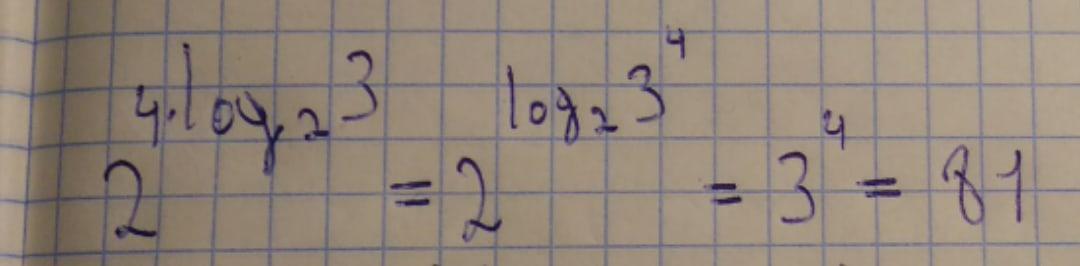 2^{4·log_2 3} = 2^{log_2 3^4} = 3^4 = 81